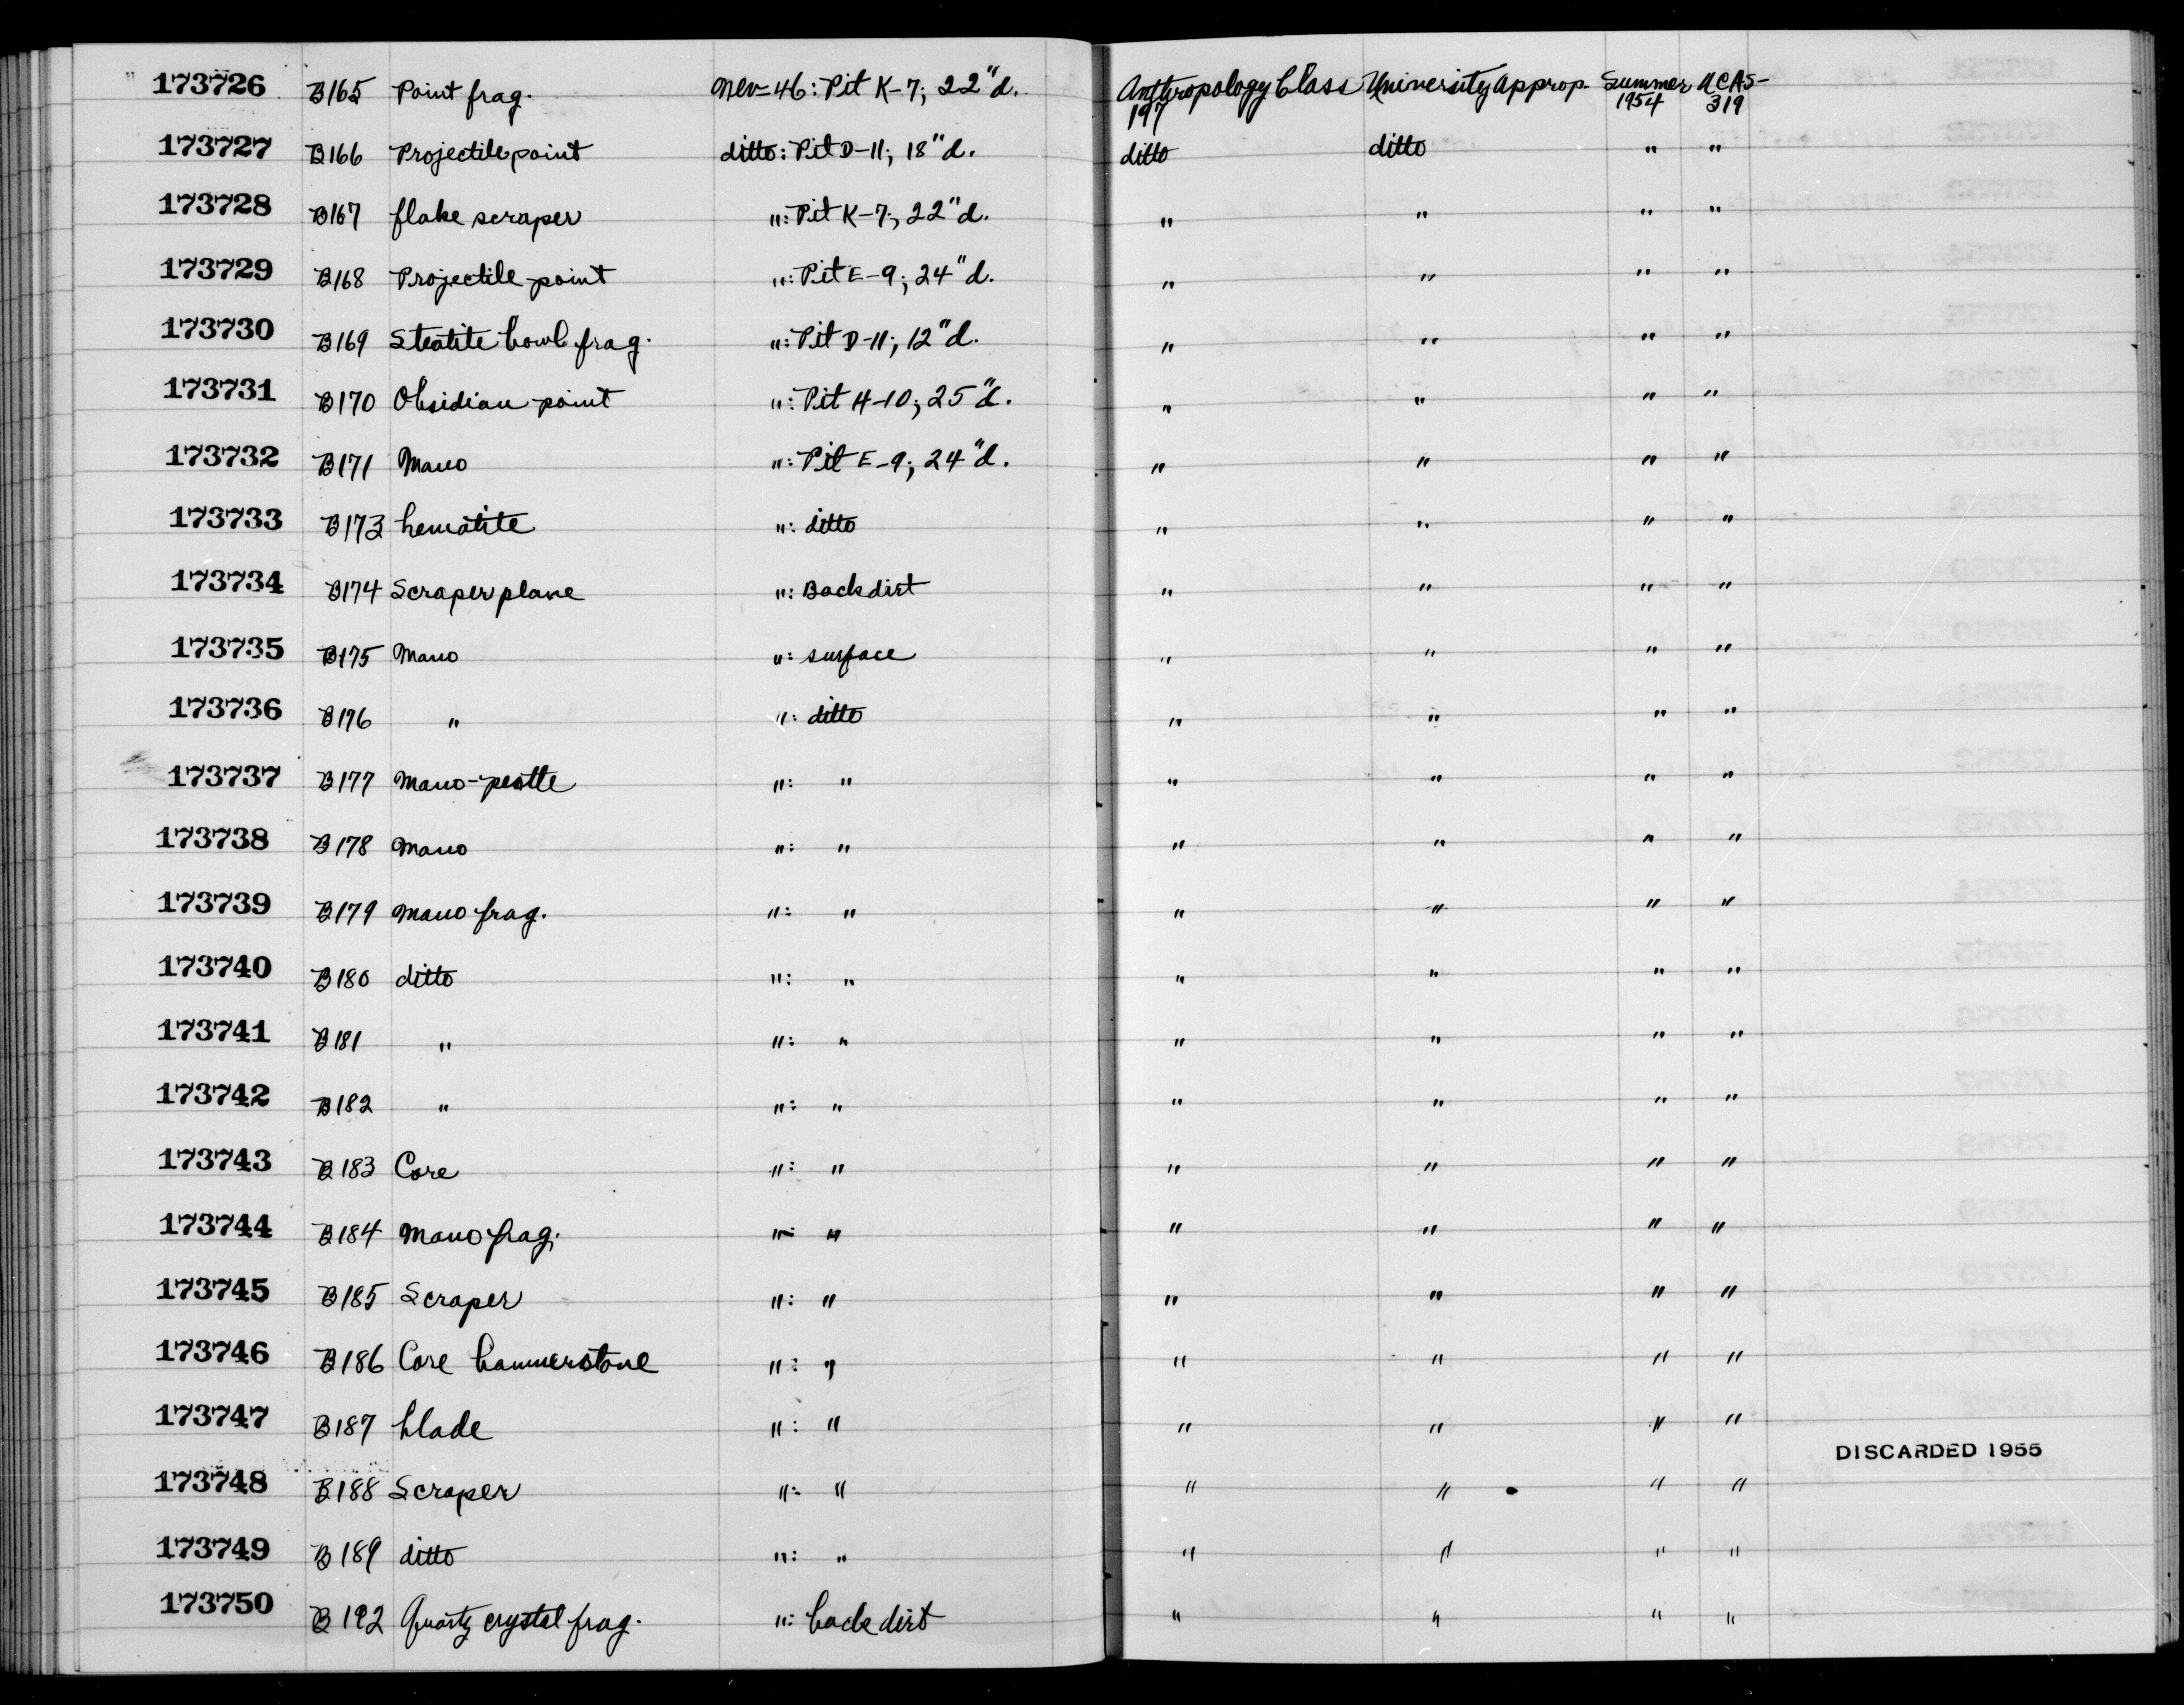 173726 B165 Point frag. Nev-46: Pit K-7; 22"d. Anthropology Class University approp. Summer UCAS-
197 1954 319
173727 B166 Projectile point ditto: Pit D-11; 18"d. ditto ditto " "
173728 B167 flake scraper ": Pit K-7; 22"d. " " " "
173729 B168 Projectile point ": Pit E-9; 24"d. " " " "
173730 B169 Steatite bowl frag. ": Pit D-11; 12"d. " " " "
173731 B170 Obsidian point ": Pit H-10; 25"d. " " " "
173732 B171 Mano ": Pit E-9; 24"d. " " " "
173733 B173 hematite ": ditto " " " "
173734 B174 Scraper plane ": Backdirt " " " "
173735 B175 Mano ": surface " " " "
173736 B176 " ": ditto " " " "
173737 B177 Mano-pestle ": " " " " "
173738 B178 Mano ": " " " " "
173739 B179 Mano frag. ": " " " " "
173740 B180 ditto ": " " " " "
173741 B181 " ": " " " " "
173742 B182 " ": " " " " "
173743 B183 Core ": " " " " "
173744 B184 Mano frag. ": " " " " "
173745 B185 Scraper ": " " " " "
173746 B186 Core hammerstone ": " " " " "
173747 B187 blade ": " " " " "
DISCARDED 1955
173748 B188 Scraper ": " " " " "
173749 B189 ditto ": " " " " "
173750 B192 Quartz crystal frag. ": back dirt " " " "